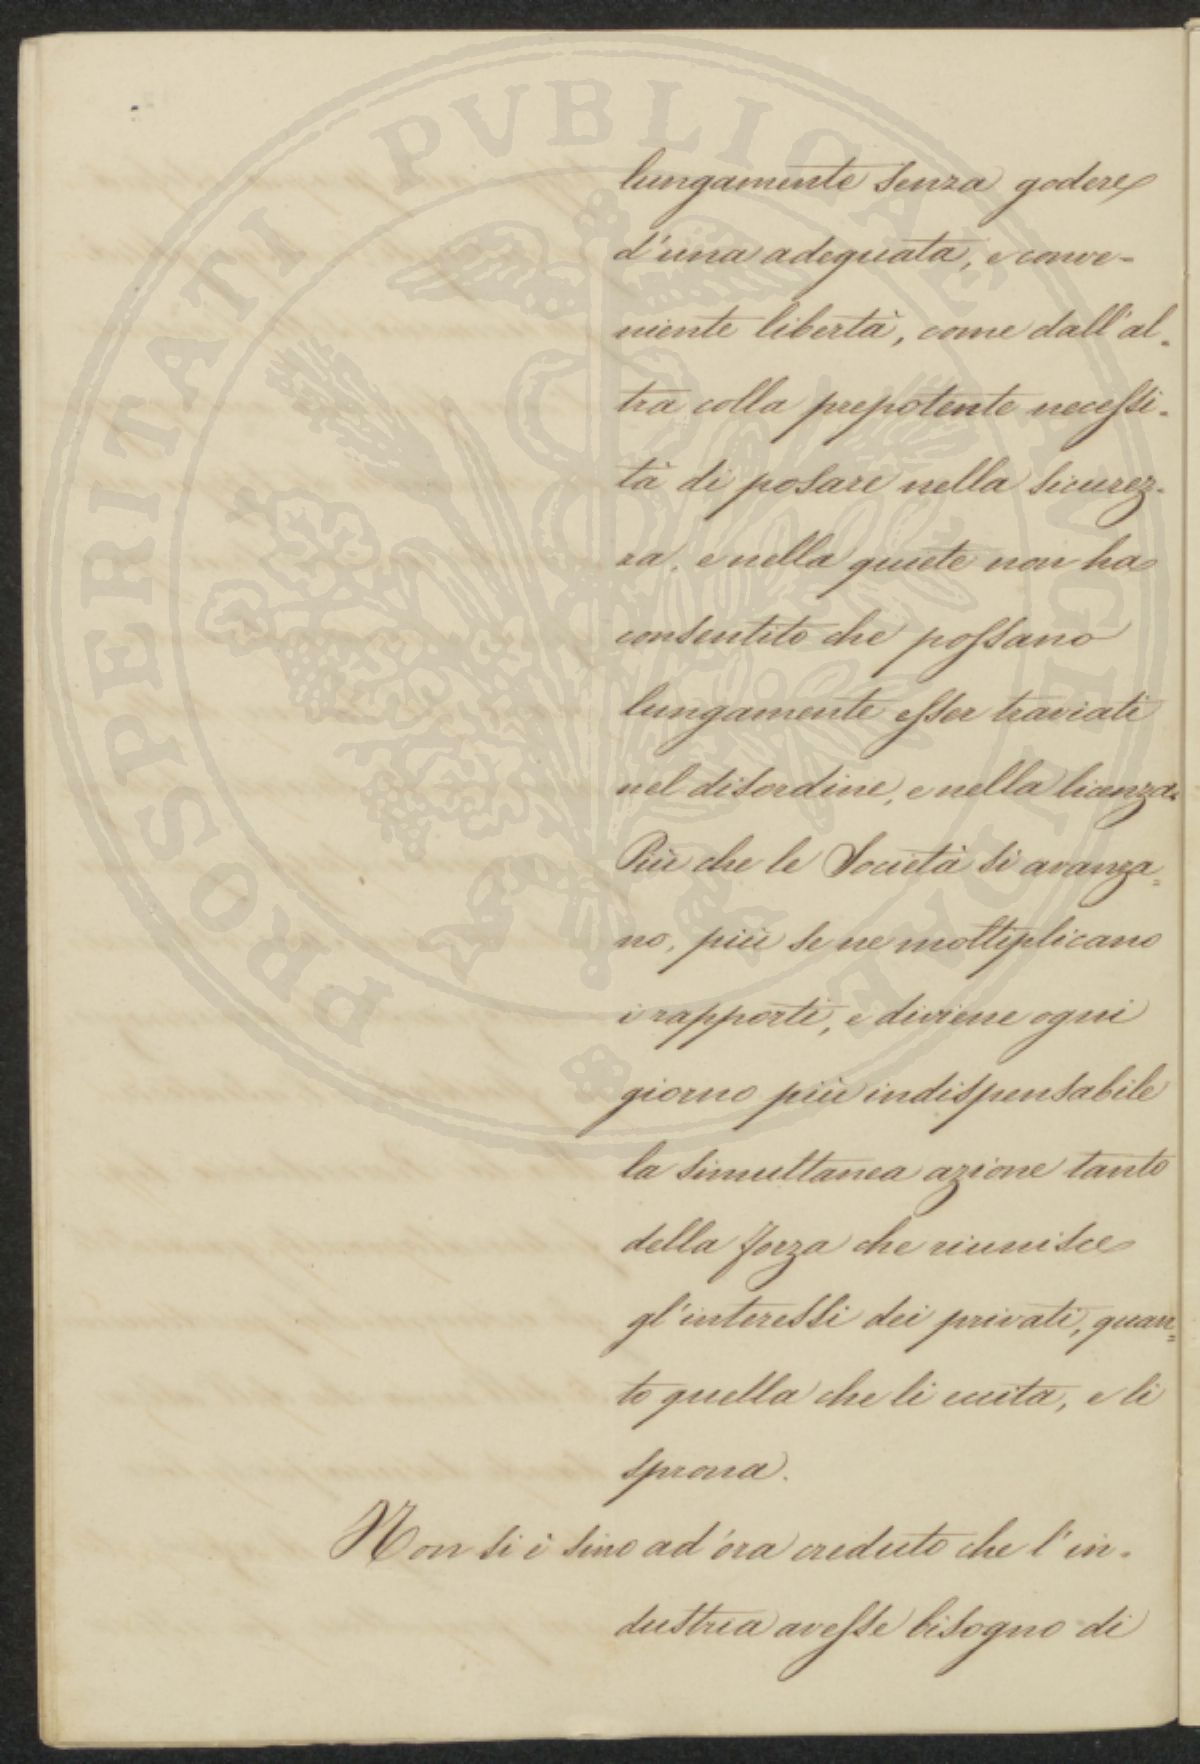 lungamente senza godere
d'una adeguata, e conve-
niente libertà, come dall'al-
tra colla prepotente necessi-
tà di posare nella sicurez-
za, e nella quiete non ha
consentito che possano
lungamente esser traviati
nel disordine, e nella licenza.
Più che le Società si avanza=
no, più se ne moltiplicano
i rapporti, e diviene ogni
giorno più indispensabile
la simultanea azione tanto
della forza che riunisce
gl'interessi dei privati, quan=
to quella che li eccita, e li
sprona.
Non si è sino ad'ora creduto che l'in-
dustria avesse bisogno di
PROSPERITATI PVBLICAE AVGENDAE